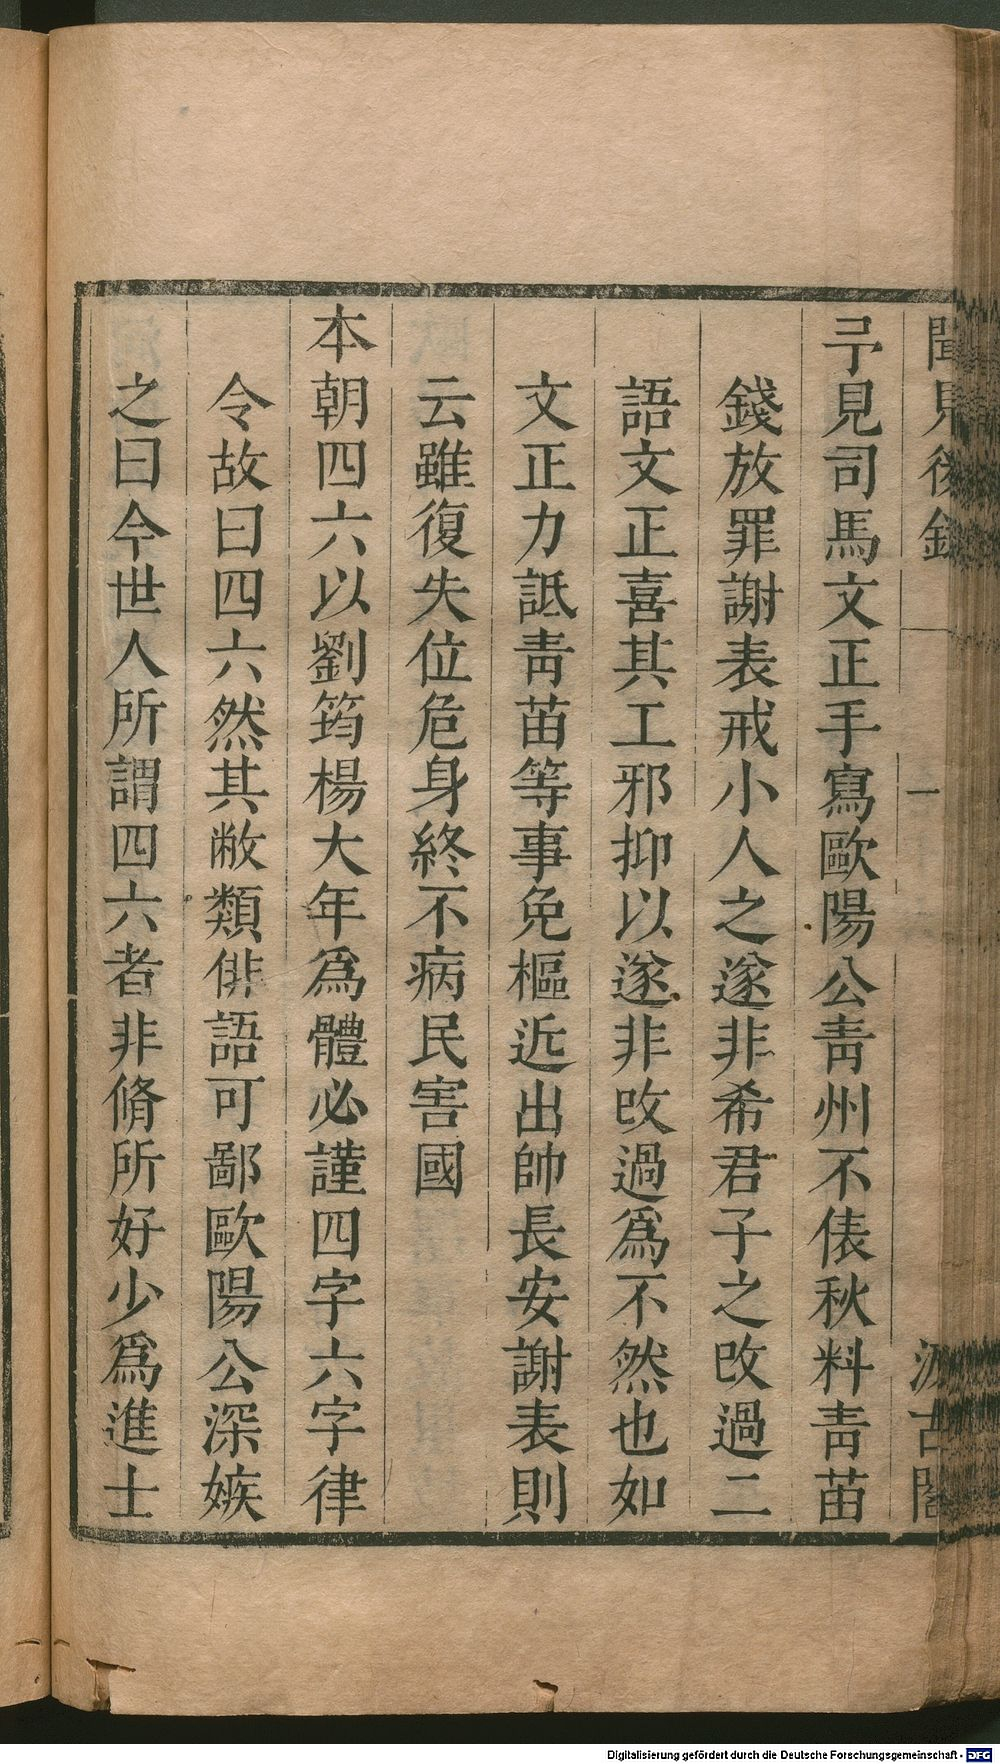 聞見後錄
一
汲古閣
予見司馬文正手寫歐陽公青州不俵秋料青苗
錢放罪謝表戒小人之遂非希君子之攺過二
語文正喜其工邪抑以遂非攺過爲不然也如
文正力詆青苗等事免樞近出帥長安謝表則
云雖復失位危身終不病民害國
本朝四六以劉筠楊大年爲體必謹四字六字律
令故曰四六然其敝類俳語可鄙歐陽公深嫉
之曰今世人所謂四六者非脩所好少爲進士
Digitalisierung gefördert durch die Deutsche Forschungsgemeinschaft - DFG